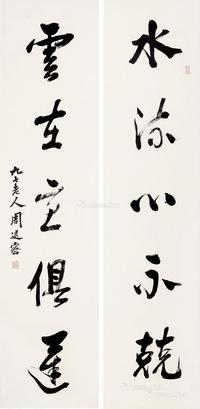 水流心不競
雲在意俱遲
九七老人周退密